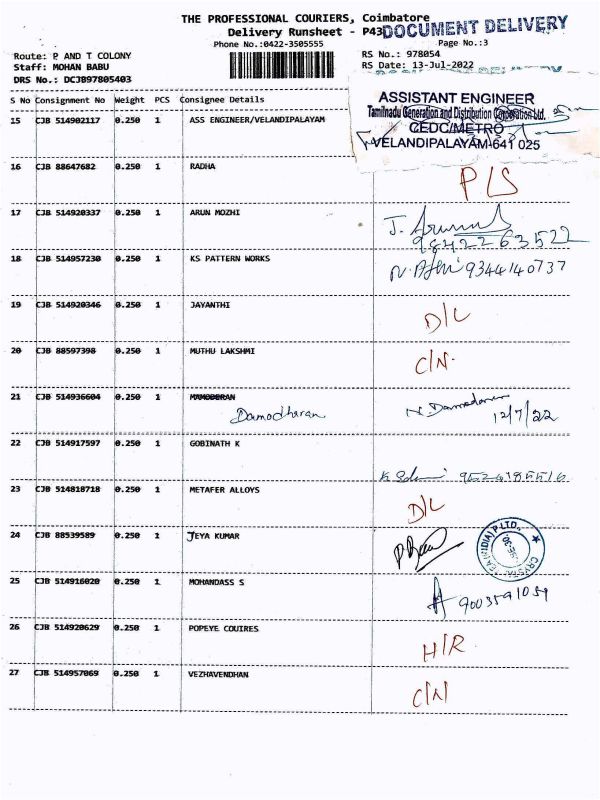 THE PROFESSIONAL COURIERS, Coimbatore
Delivery Runsheet - P43
DOCUMENT DELIVERY
Phone No.:0422-3505555
Page No.:3
Route: P AND T COLONY
RS No.: 978054
Staff: MOHAN BABU
RS Date: 13-Jul-2022
DRS No.: DCJB97805403
S No Consignment No Weight PCS Consignee Details
ASSISTANT ENGINEER
Tamilnadu Generation and Distribution Corporation Ltd.
CEDC/METRO
VELANDIPALAYAM-641 025
15 CJB 514902117 0.250 1 ASS ENGINEER/VELANDIPALAYAM
16 CJB 88647682 0.250 1 RADHA
P/S
17 CJB 514920337 0.250 1 ARUN MOZHI
J.
9842263522
18 CJB 514957230 0.250 1 KS PATTERN WORKS
9344140737
19 CJB 514920346 0.250 1 JAYANTHI
D/L
20 CJB 88597398 0.250 1 MUTHU LAKSHMI
C/N.
21 CJB 514936604 0.250 1 MAMODERAN
Damodharan N. Damodaran
12/7/22
22 CJB 514917597 0.250 1 GOBINATH K
23 CJB 514818718 0.250 1 METAFER ALLOYS
D/L
24 CJB 88539589 0.250 1 JEYA KUMAR
25 CJB 514916020 0.250 1 MOHANDASS S
9003591059
26 CJB 514920629 0.250 1 POPEYE COUIRES
H/R.
27 CJB 514957069 0.250 1 VEZHAVENDHAN
C/N